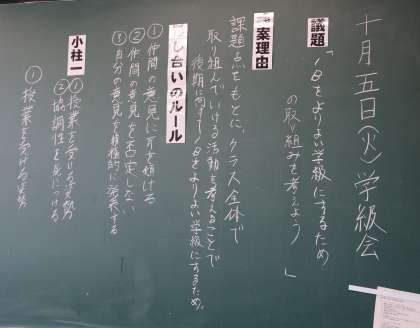 十月五日(火)学級会
議題
「1Bをよりよい学級にするため
の取り組みを考えよう」
案理由
課題点をもとに、クラス全体で
取り組んでいける活動を考えることで
後期に向けて1Bをよりよい学級にするため。
し合いのルール
①仲間の意見に耳を傾ける
②仲間の意見を否定しない
③自分の意見を積極的に発表する
小柱一
①授業を受ける姿勢
②協調性を身につける
①授業を受ける姿勢